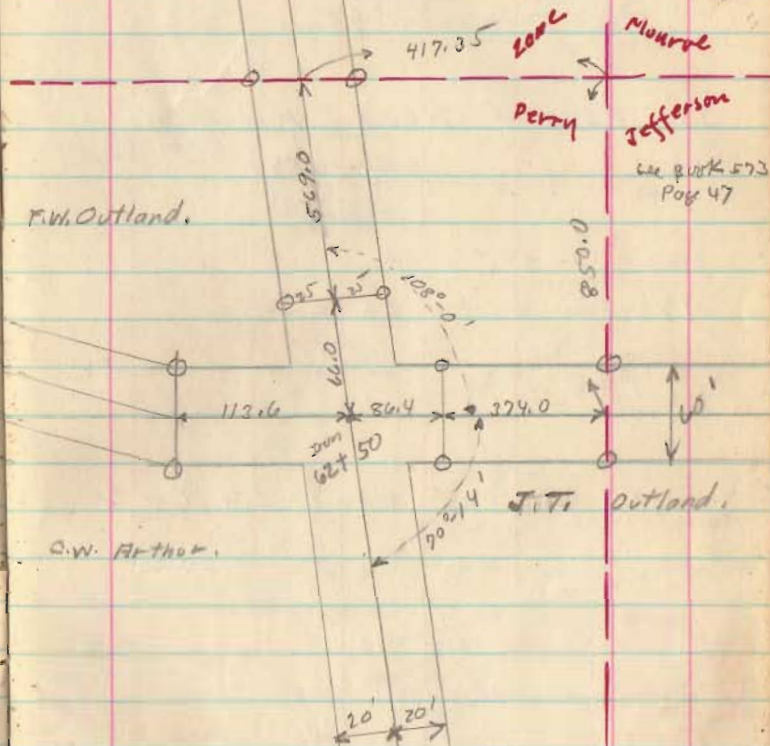 417.35
Zone
Monroe
Perry
Jefferson
see Book 573
Page 47
F.W. Outland.
569.0
850.0
25 25'
108°-0'
66.0
113.6
86.4
374.0
60'
62+50
70°-14'
J.T. Outland.
C.W. Arthor.
20' 20'